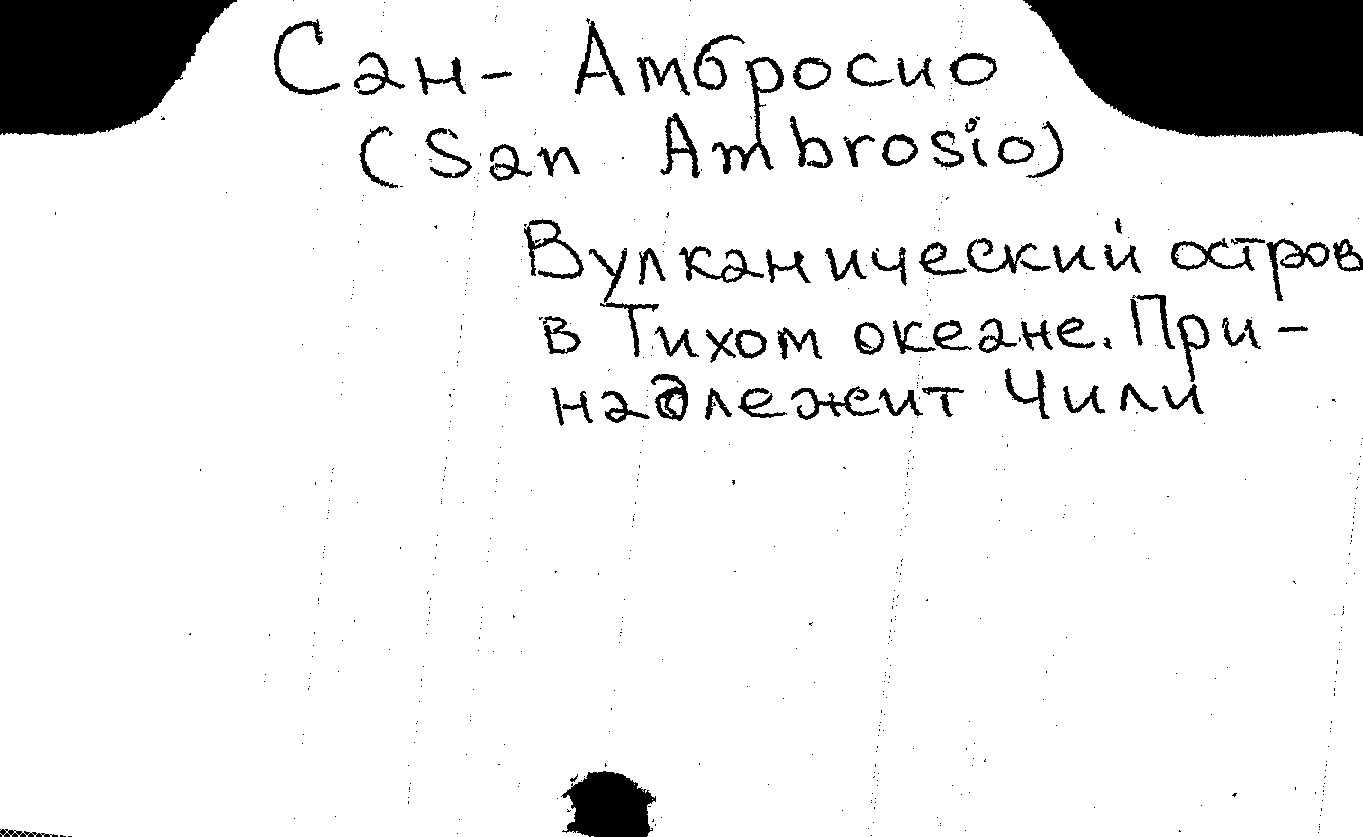 Сан- Амбросио
(San Ambrosio)
Вулканический остров
в Тихом океане. При-
надлежит Чили